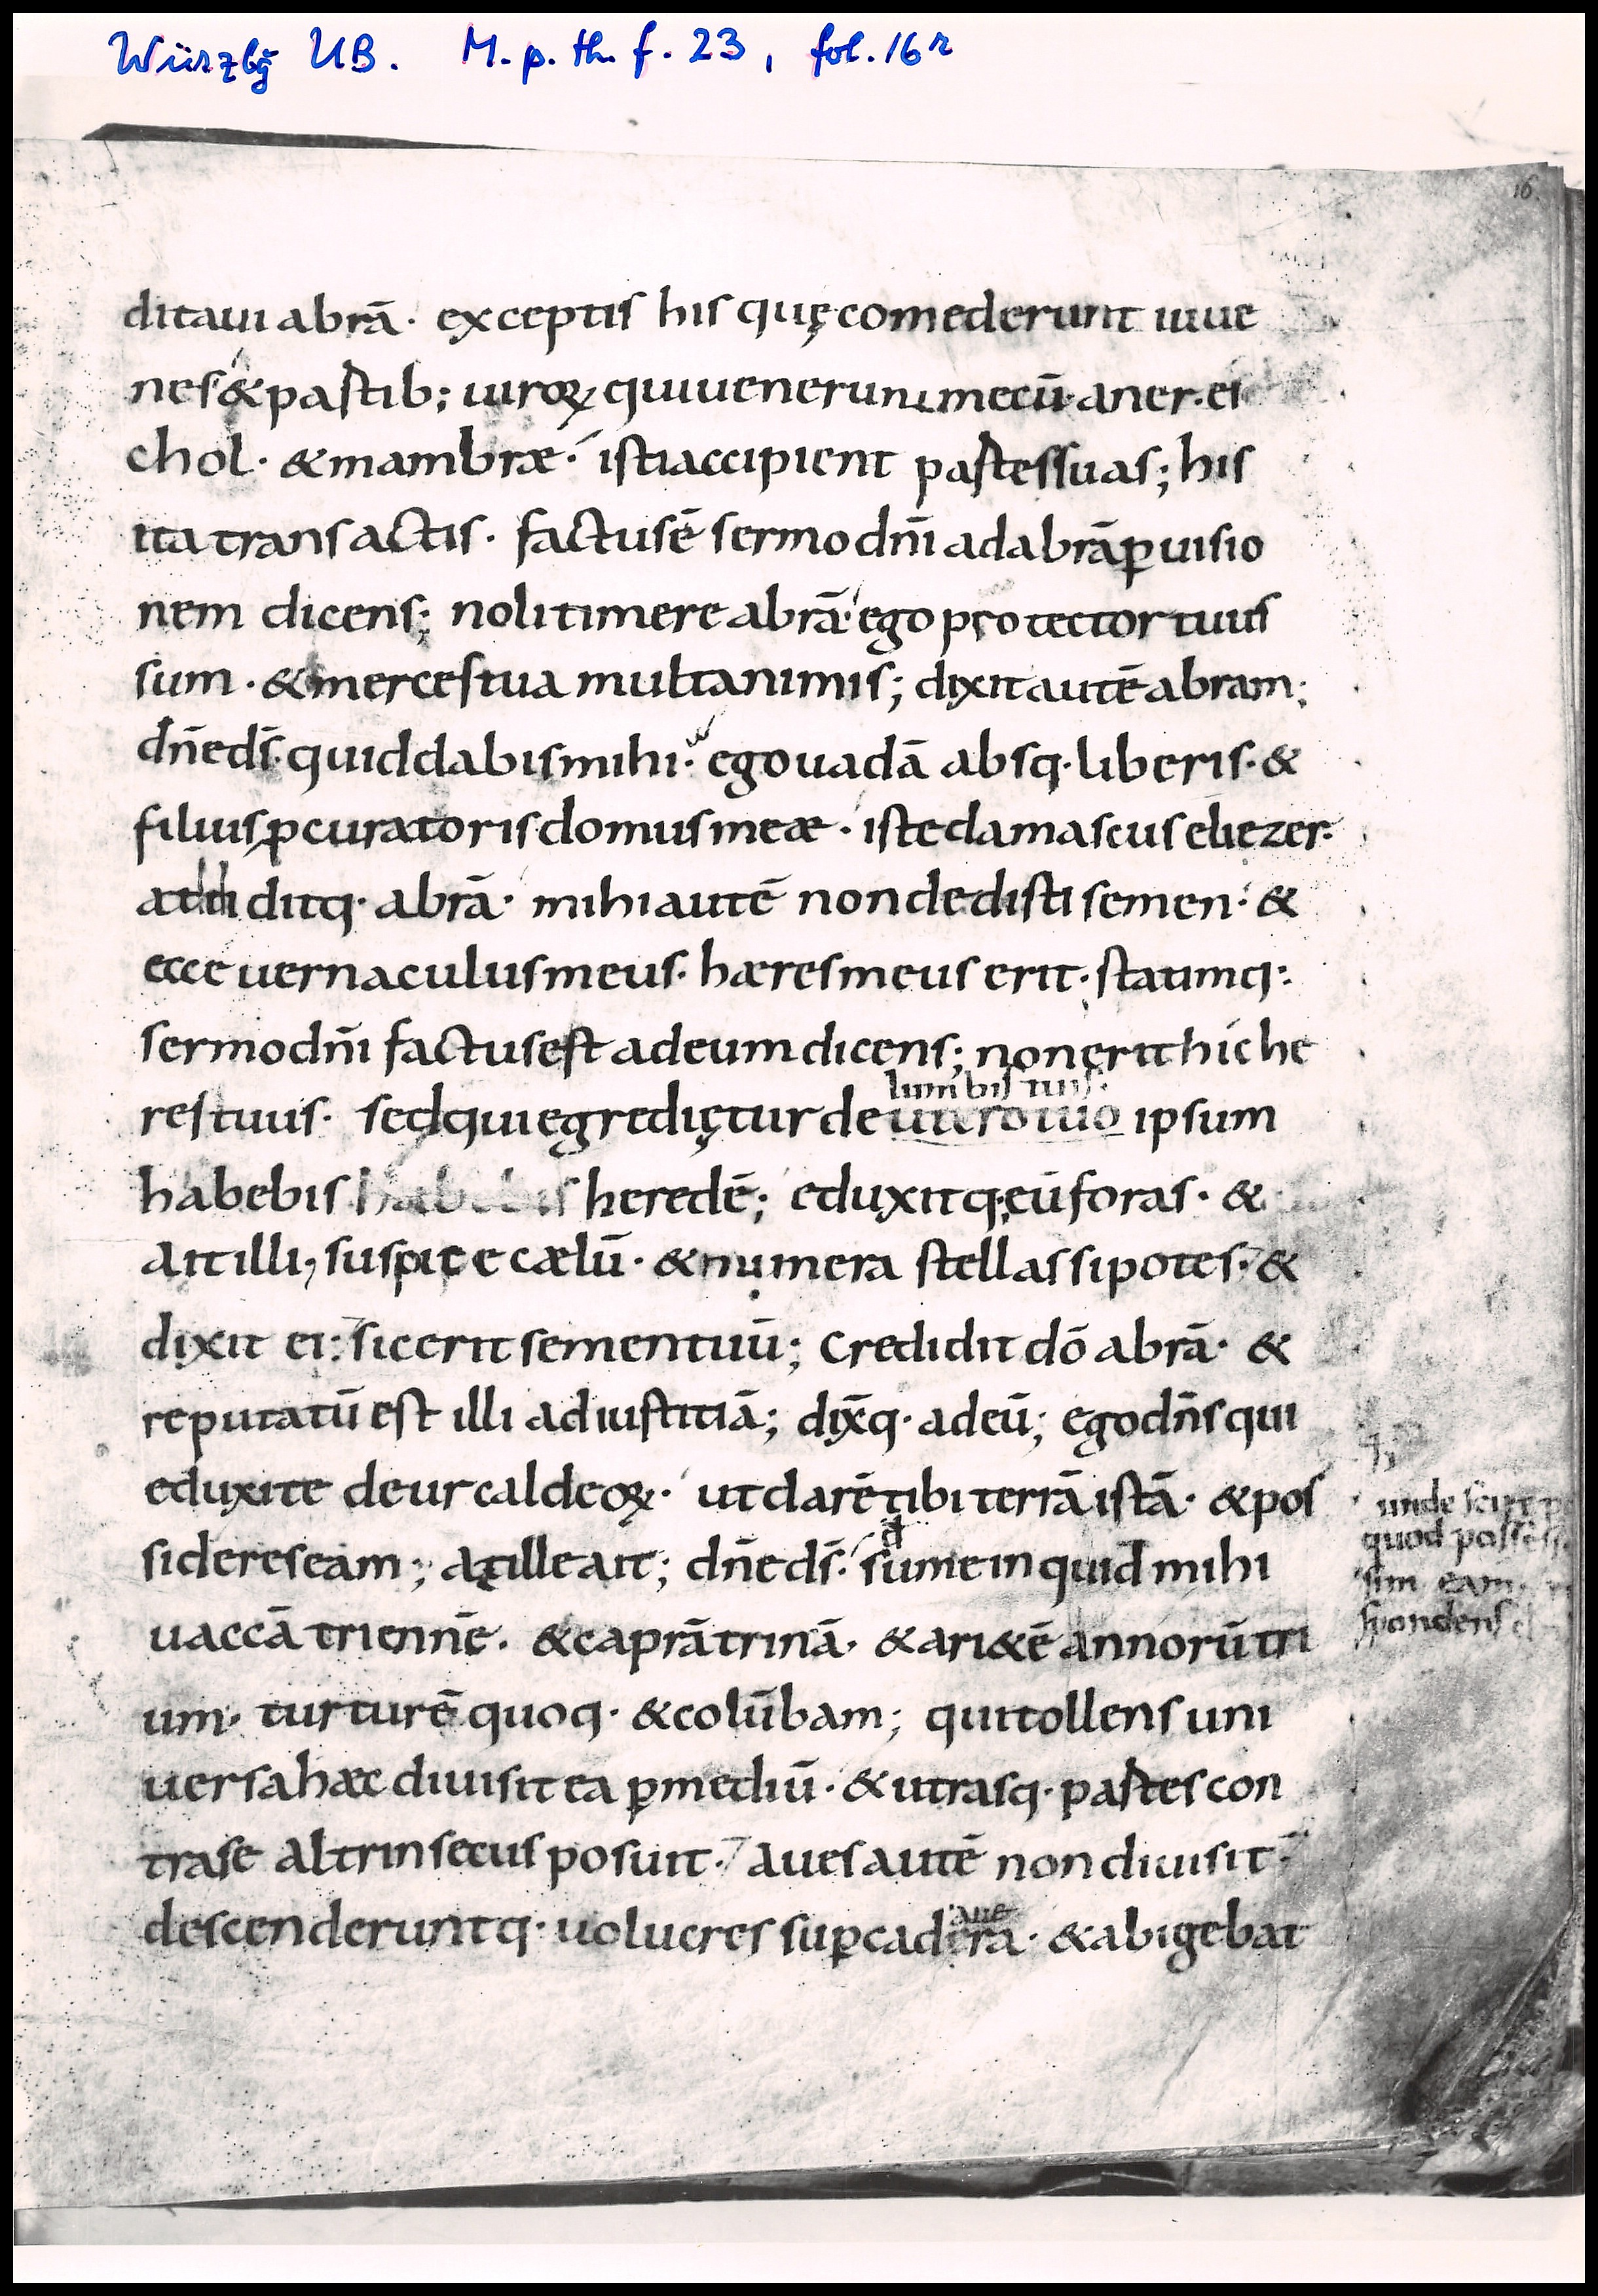 Würzbg̃ UB. M. p. th. f. 23, fol. 16r
16
ditaui abrā· exceptis his quę comederunt iuue
nes & partib; uiroꝝ qui uenerunt mecū· aner· ei
chol· & mambræ· isti accipient partes suas; his
ita transactis· factus ē sermo dn̄i ad abrā ꝑ uisio
nem dicens; noli timere abrā· ego protector tuus
sum· & merces tua multa nimis; dixit autē abram;
dn̄e ds̄· quid dabis mihi· ego uadā absq· liberis· &
filius ꝓcuratoris domus meæ· iste damascus eliezer·
addiditq· abrā· mihi autē non dedisti semen· &
ecce uernaculus meus· hæres meus erit· statimq:
sermo dn̄i factus est ad eum dicens; non erit hic he
lumbis tuis·
res tuus· sed qui egrediętur de utero tuo ipsum
habebis habebis heredē; eduxitq; eū foras· &
ait illi, suspice cælū· & numera stellas si potes· &
dixit ei: sic erit semen tuū; credidit dō abrā· &
reputatū est illi ad iustitiā; dix̄q· ad eū; ego dn̄s qui
eduxi te de ur caldeoꝝ· ut darē tibi terrā istā· & pos
sideres eam; at ille ait; dn̄e ds̄· sume inquid mihi
unde scire po
quod posses
sim eam· re
spondens d
uaccā triennē· & caprā trimā· & ari&ē annorū tri
um· turturē quoq· & colūbam; qui tollens uni
uersa hæc diuisit ea ꝑ mediū· & utrasq· partes con
tra se altrinsecus posuit· aues autē non diuisit·
aue
descenderuntq· uolucres suꝑ cadera· & abigebat